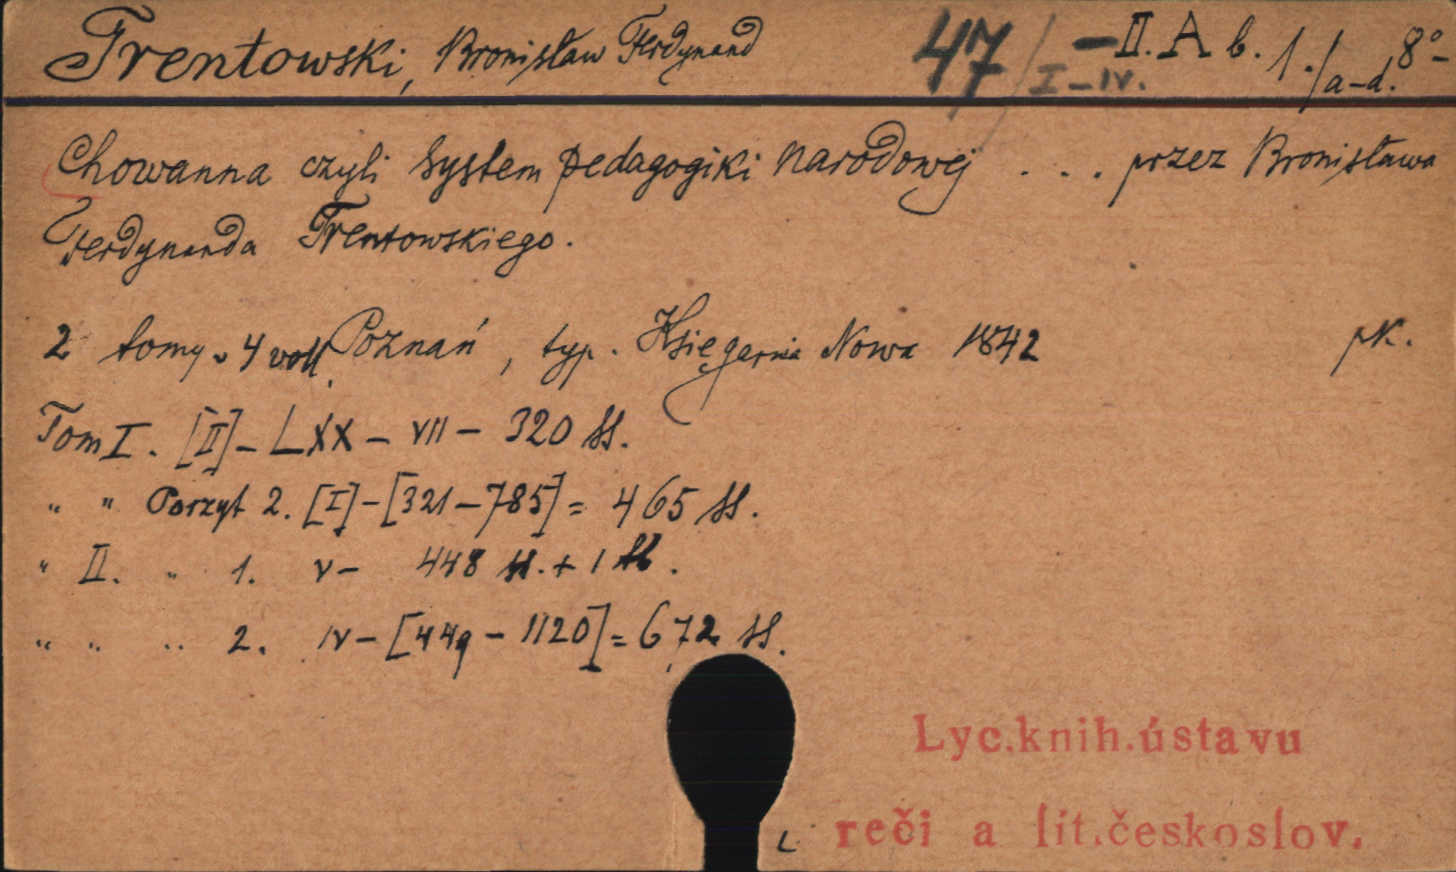 Trentowski, Bronisław Ferdynand 47/I-IV. -II. A b. 1./a-d. 8°-
Chowanna czyli System pedagogiki narodowej . . . przez Bronisława
Ferdynanda Trentowskiego.
2 tomy v 4 voll. Poznań, typ. Księgarnia Nowa 1842 pk.
Tom I. [II]-LXX-VII-320 SS.
" " Porzyt 2. [I]-[321-785]= 465 SS.
" II. " 1. V- 448 SS.+ 1 SS.
" " " 2. IV-[449-1120]=672 SS.
Lyc.knih.ústavu
L reči a lit.českoslov.